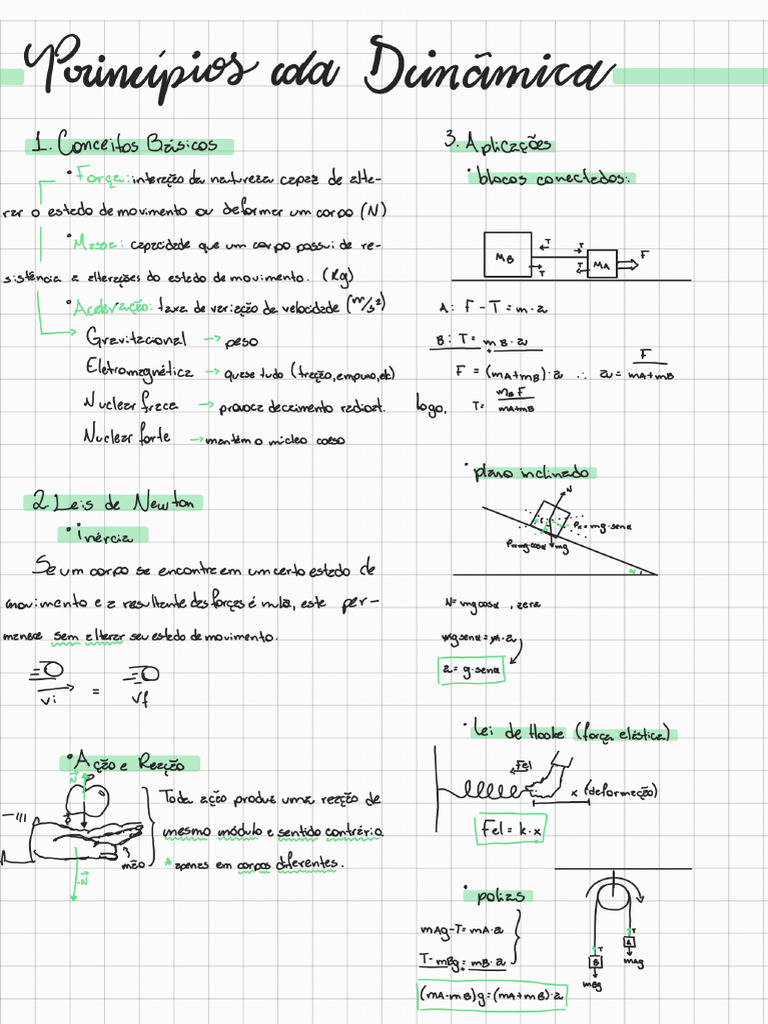 Princípios da Dinâmica
1. Conceitos Básicos
• Força: interação da natureza capaz de alte-
rar o estado de movimento ou deformar um corpo (N)
• Massa: capacidade que um corpo possui de re-
sistência a alterações do estado de movimento. (Kg)
• Aceleração: taxa de variação da velocidade (m/s²)
Gravitacional → peso
Eletromagnética → quase tudo (tração, empuxo, etc)
Nuclear fraca → provoca decaimento radioat.
Nuclear forte → mantém o núcleo coeso
2. Leis de Newton
• inércia
Se um corpo se encontra em um certo estado de
movimento e a resultante das forças é nula, este per-
manece sem alterar seu estado de movimento.
Vi = Vf
• Ação e Reação
N
P
-N
mão
Toda ação produz uma reação de
mesmo módulo e sentido contrário
* apenas em corpos diferentes.
3. Aplicações
• blocos conectados:
MB T T T T MA F
A: F - T = m·a
B: T = mB·a
F = (mA+mB)·a ∴ a = F/mA+mB
logo, T = mB F/mA+mB
• plano inclinado
N
Px=mg·senα
Py=mgcosα mg
α
N=mgcosα ,
mgsenα=m·a
a = g·senα
• Lei de Hooke (força elástica)
Fel
x (deformação)
Fel = k·x
• polias
mAg-T=mA·a
T-mBg=mB·a
(mA-mB)g=(mA+mB)·a
T T
B A
mBg mAg